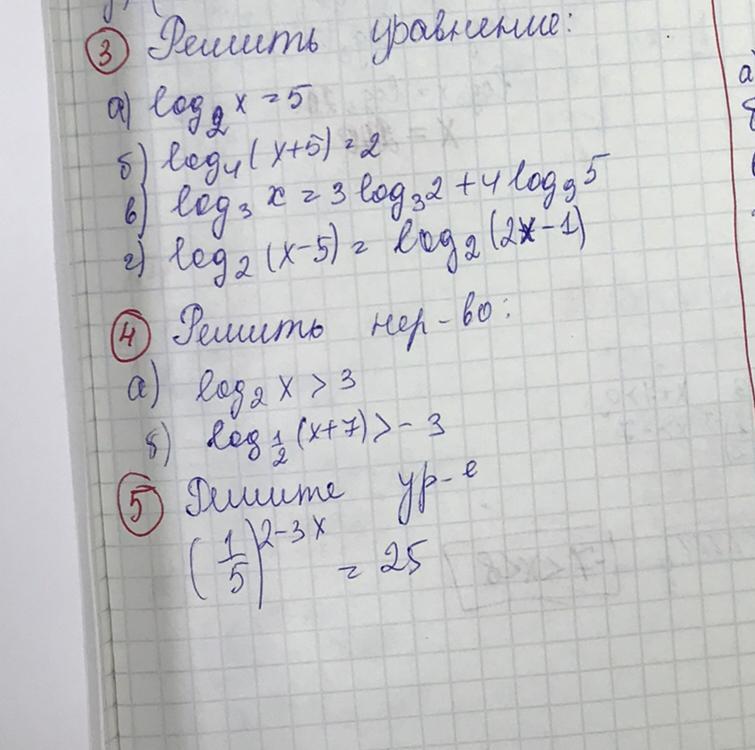 ③ Решить уравнение:
а) log₂ x = 5
б) log₄ (x+5) = 2
в) log₃ x = 3 log₃ 2 + 4 log₉ 5
г) log₂ (x-5) = log₂ (2x-1)
④ Решить нер-во:
а) log₂ x > 3
б) log_{1/2} (x+7) > -3
⑤ Решите ур-е
(1/5)^{2-3x} = 25
а)